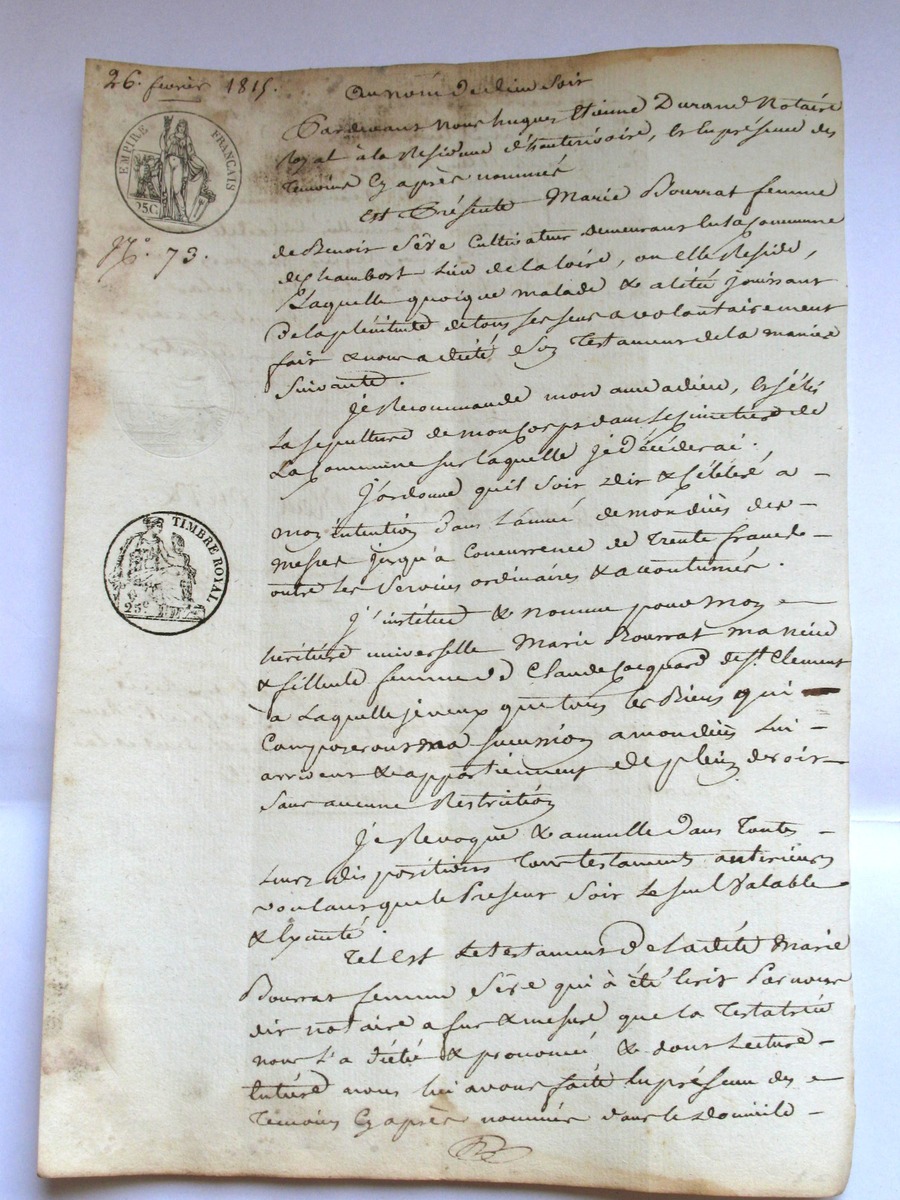 26. fevrier 1815.
Au nom de dieu soit
Pardevant nous hugues Etienne Durand Notaire
Royal à la Residence d'hauterivoire, & En présence des
temoins Cy après nommés
EMPIRE FRANÇAIS
25C
N.° 73.
Est Présente Marie Bourrat femme
de Benoit Sève Cultivateur demeurant En la Commune
de Chambost lieu de la loire, ou elle Reside,
Laquelle quoique malade & alitée jouissant
de la plénitude de tous ses sens a volontairement
fait & nous a dicté son Testament de la maniere
Suivante.
Je Recommande mon ame a dieu, Et
La sepulture de mon Corps dans le Cimetiere de
La Commune sur laquelle je décéderai.
J'ordonne qu'il soit dit & Célébré a
mon intention dans L'année de mon décès des
messes jusqu'à Concurrence de Trente francs
outre les Services ordinaires & accoutumés.
TIMBRE ROYAL
25C
J'institue & nomme pour mon
heritiere universelle Marie Bourrat ma niece
& filleule femme de Claude Coquard de St. Clement
à Laquelle je veux que tous les Biens qui
Composeront ma succession a mon décès lui
arrivent & appartiennent de plein droit
Sans aucune Restriction
Je Revoque & annulle dans Toutes
Leurs dispositions Tous testaments anterieurs
voulant que le Present soit le seul valable
& Exécuté.
Tel Est le testament de la dite Marie
Bourrat femme Sève qui à été Ecrit Par nous
dit notaire a fur & mesure que la Testatrice
nous l'a dicté & prononcé & dont Lecture
Entiere nous lui avons faite En présence des
Temoins Cy après nommés dans le domicile